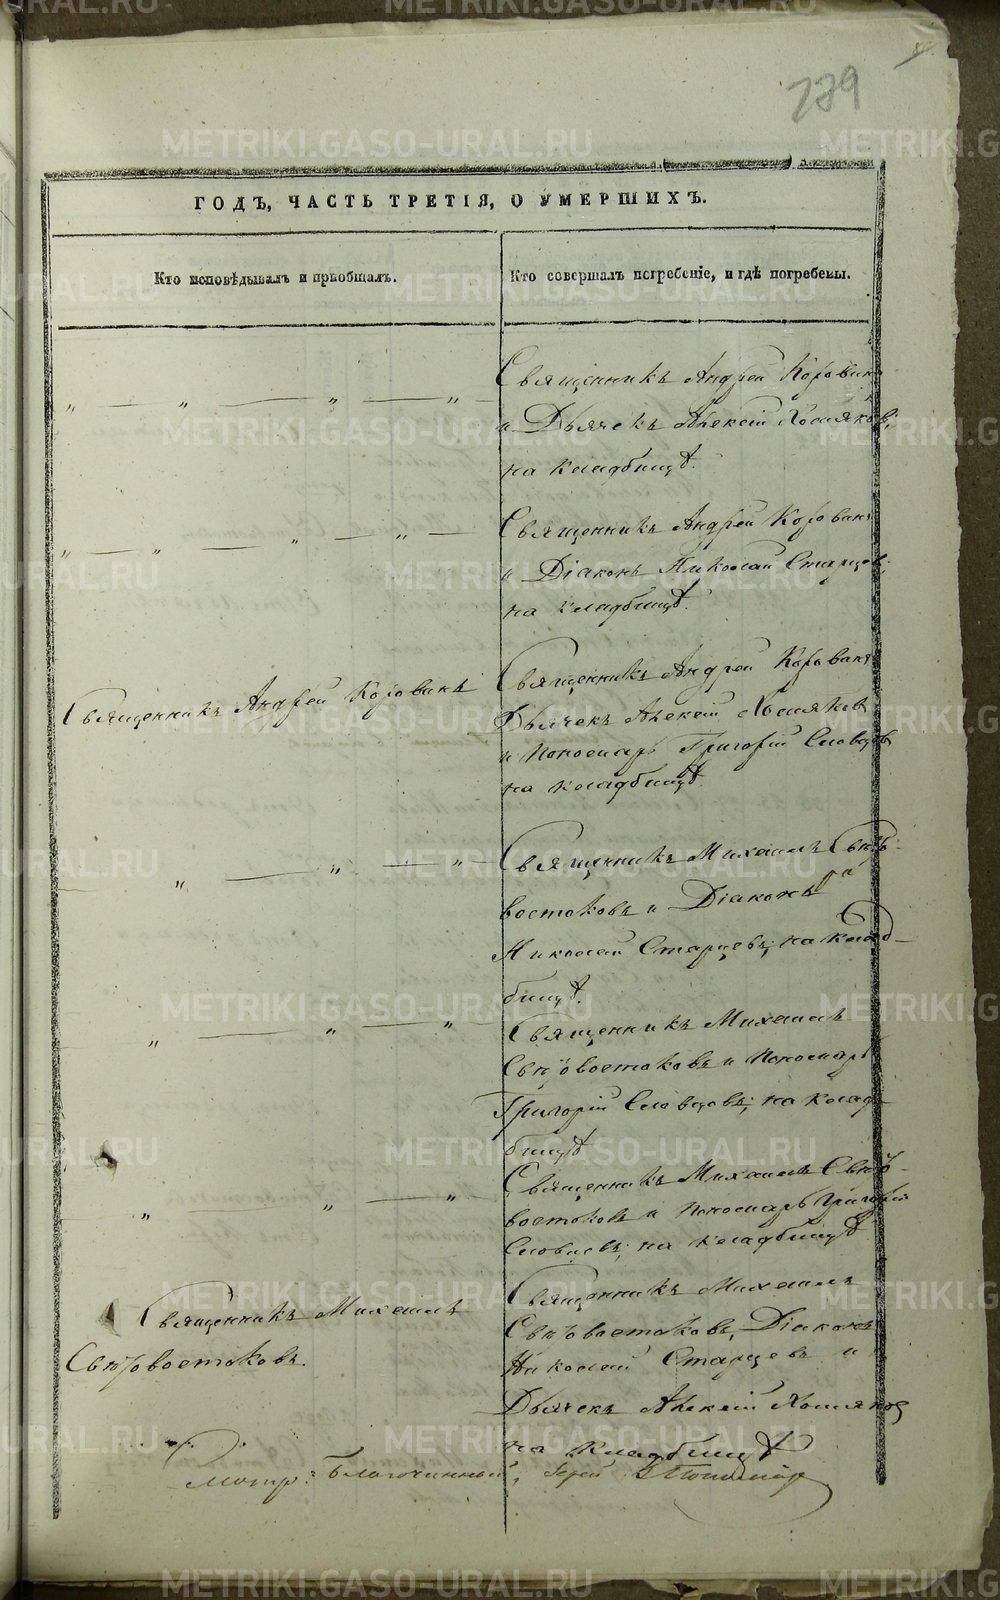 739
ГОДЪ, ЧАСТЬ ТРЕТІЯ, О УМЕРШИХЪ.
Кто исповѣдывалъ и пріобщалъ.
Кто совершалъ погребеніе, и гдѣ погребены.
Священникъ Андрей Корованъ
и Дьячекъ Алексій Хомяковъ;
на кладбищѣ.
Священникъ Андрей Корованъ
и Діаконъ Николай Старцевъ;
на кладбищѣ.
Священникъ Андрей Корованъ
Священникъ Андрей Корованъ
Дьячекъ Алексій Хомяковъ
и Пономарь Григорій Словцовъ
на кладбищѣ
Священникъ Михаилъ Свѣто-
востоковъ и Діаконъ
Николай Старцевъ; на клад-
бищѣ.
Священникъ Михаилъ
Свѣтовостоковъ и Пономарь
Григорій Словцовъ; на клад-
бищѣ
Священникъ Михаилъ Свѣто-
востоковъ и Пономарь Григорій
Словцовъ; на кладбищѣ
Священникъ Михаилъ
Свѣтовостоковъ.
Священникъ Михаилъ
Свѣтовостоковъ, Діаконъ
Николай Старцевъ и
Дьячекъ Алексій Хомяковъ
на кладбищѣ
Смотр: Благочинный, Іерей
METRIKI.GASO-URAL.RU